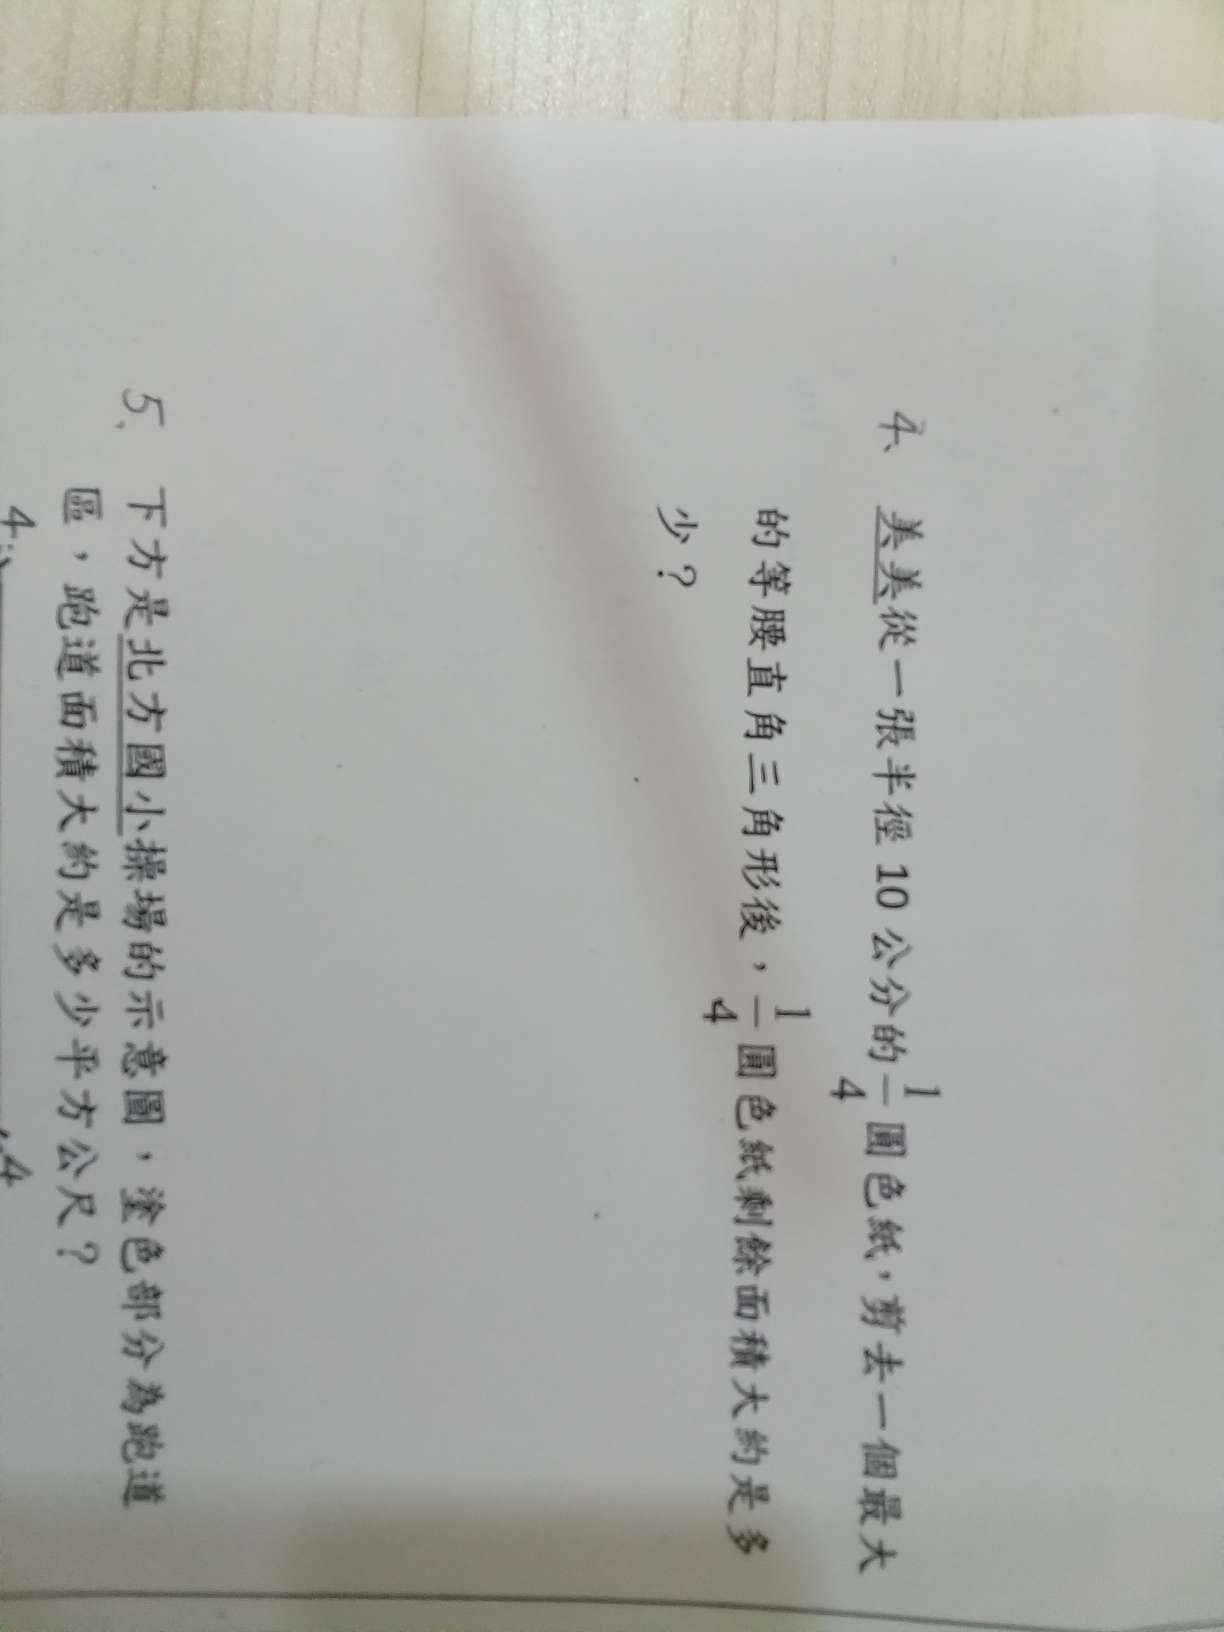 4、 美美從一張半徑 10 公分的 1/4 圓色紙，剪去一個最大
的等腰直角三角形後，1/4 圓色紙剩餘面積大約是多
少？
5、 下方是北方國小操場的示意圖，塗色部分為跑道
區，跑道面積大約是多少平方公尺？
4 4